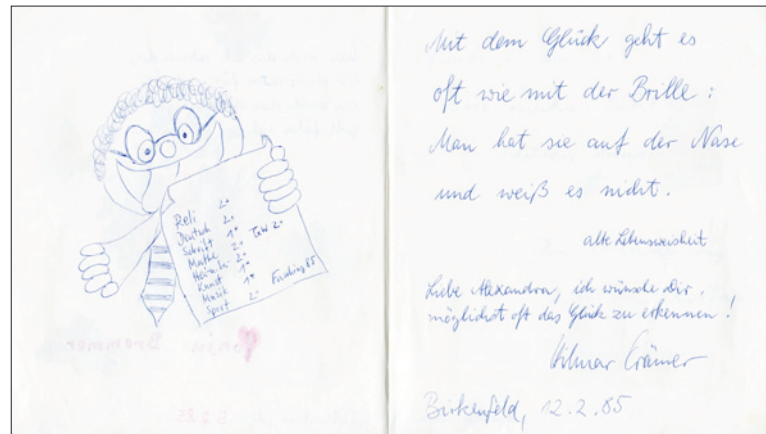 Reli 2*
Deutsch 2*
Schrift 1*
Mathe 2*
2*
Kunst 1*
Musik 1*
Sport 2*
Fasching 85
Mit dem Glück geht es
oft wie mit der Brille:
Man hat sie auf der Nase
und weiß es nicht.
alte Lebensweisheit
Liebe Alexandra, ich wünsche Dir,
möglichst oft das Glück zu erkennen!
Hilmar Crämer
Birkenfeld, 12.2.85